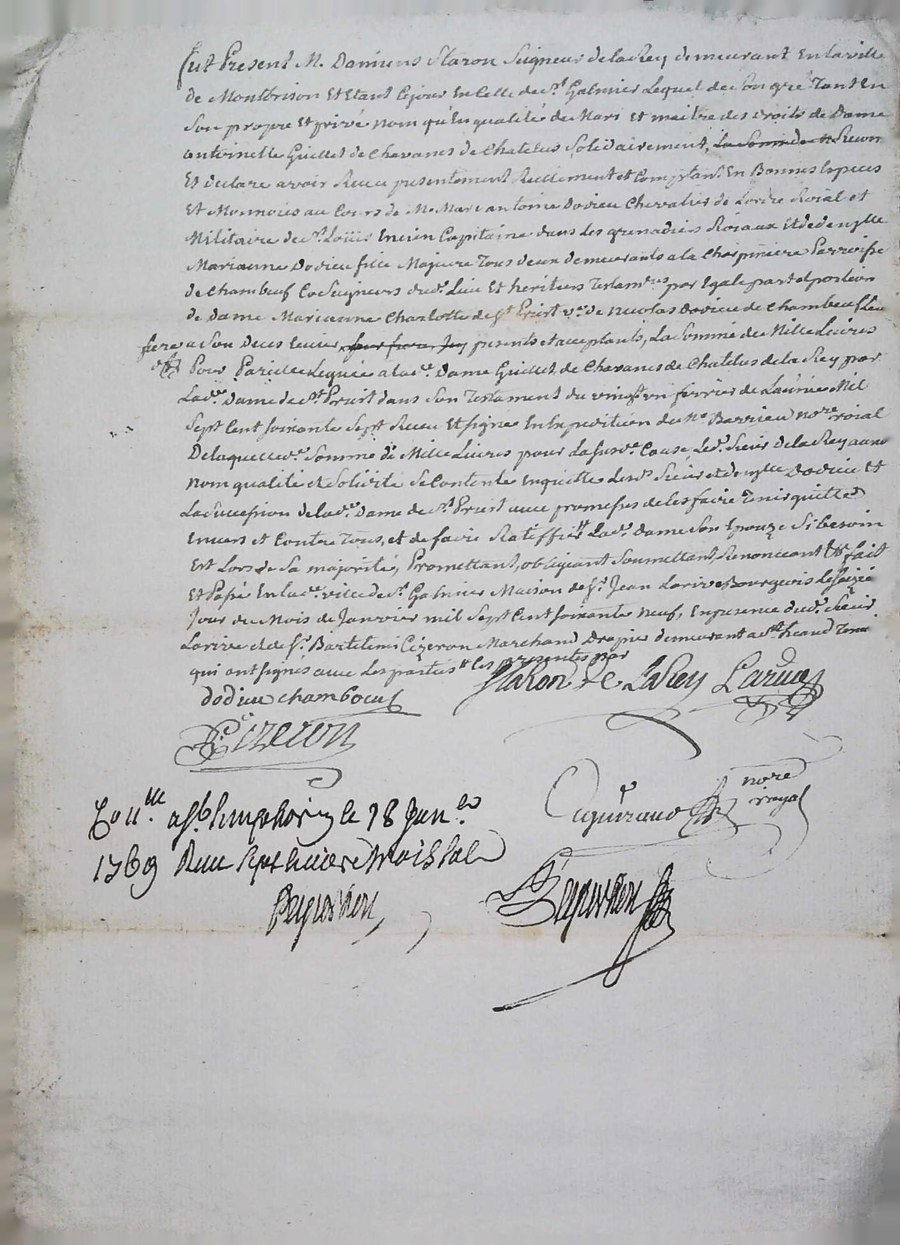 fut Present M. Damiens Staron Seigneur de la Rey demeurant En la ville
de Montbrison Et Etant Cejour En Celle de st. Galmier Lequel de son gré Tant En
Son propre Et privé nom qu'En qualité de Mary et maitre des Droits de Dame
antoinette Guillet de Chavanes de Chatelus Solidairement,
Et declare avoir Receu presentement Reellement et Comptant En Bonnes Especes
Et Monnoies au Cours de Mr. Marc antoine Dodieu Chevalier de Lordre Roial et
Militaire de st. Loüis Encien Capitaine dans Les grenadiers Roiaux Et de delle
Marianne Dodieu fille Majeure Tous deux demeurants a la Charpiniere Parroisse
de Chambeuf CoSeigneurs dud. Lieu Et heritiers Testamres par Egale part et portion
de Dame Marianne Charlotte de st Priest ve. de nicolas Dodieu de Chambeuf
presents et acceptants, La Somme de Mille Livres
Pour Pareille Leguée a lade. Dame Guillet de Chavanes de Chatelus de la Rey par
Lade. Dame de st. Priest dans Son Testament du vingt un fevrier de Lannée Mil
Sept Cent soixante Sept Receu Et signé En Expedition de Me Barrieu nore roial
De laquelle de. Somme de Mille Livres pour La susde. Cause Led. Sieur de la Rey aux
nom qualité et Solidité Se Contente En quitte Lesd. Sieur et delle Dodieu et
La Succession de lade. Dame de st. Priest avec promesse de les faire Tenir quitte
Envers et Contre Tous, et de faire Ratiffier Lade. Dame Son Epouze Si besoin
Est Lors de Sa majorité, Promettant, obligeant Soumettant, Renonceant fait
Et Passé En lade ville de st Galmier Maison de sr. Jean Larive Bourgeois Le seize
Jour du Mois de Janvier mil Sept Cent soixante Neuf, En presence dud. Sieur
Larive et de sr. Bartelemi Cizeron Marchand Drapier demeurant a st.
qui ont signés avec Les parties Les presentes par
dodieu chambœuf
Staron de LaRey Larive
Cizeron
nore
royal
Conlle. a st. simphorien le 28 Janer.
1769 Reçu sept livres trois sols
Peyrichon
Peyrichon